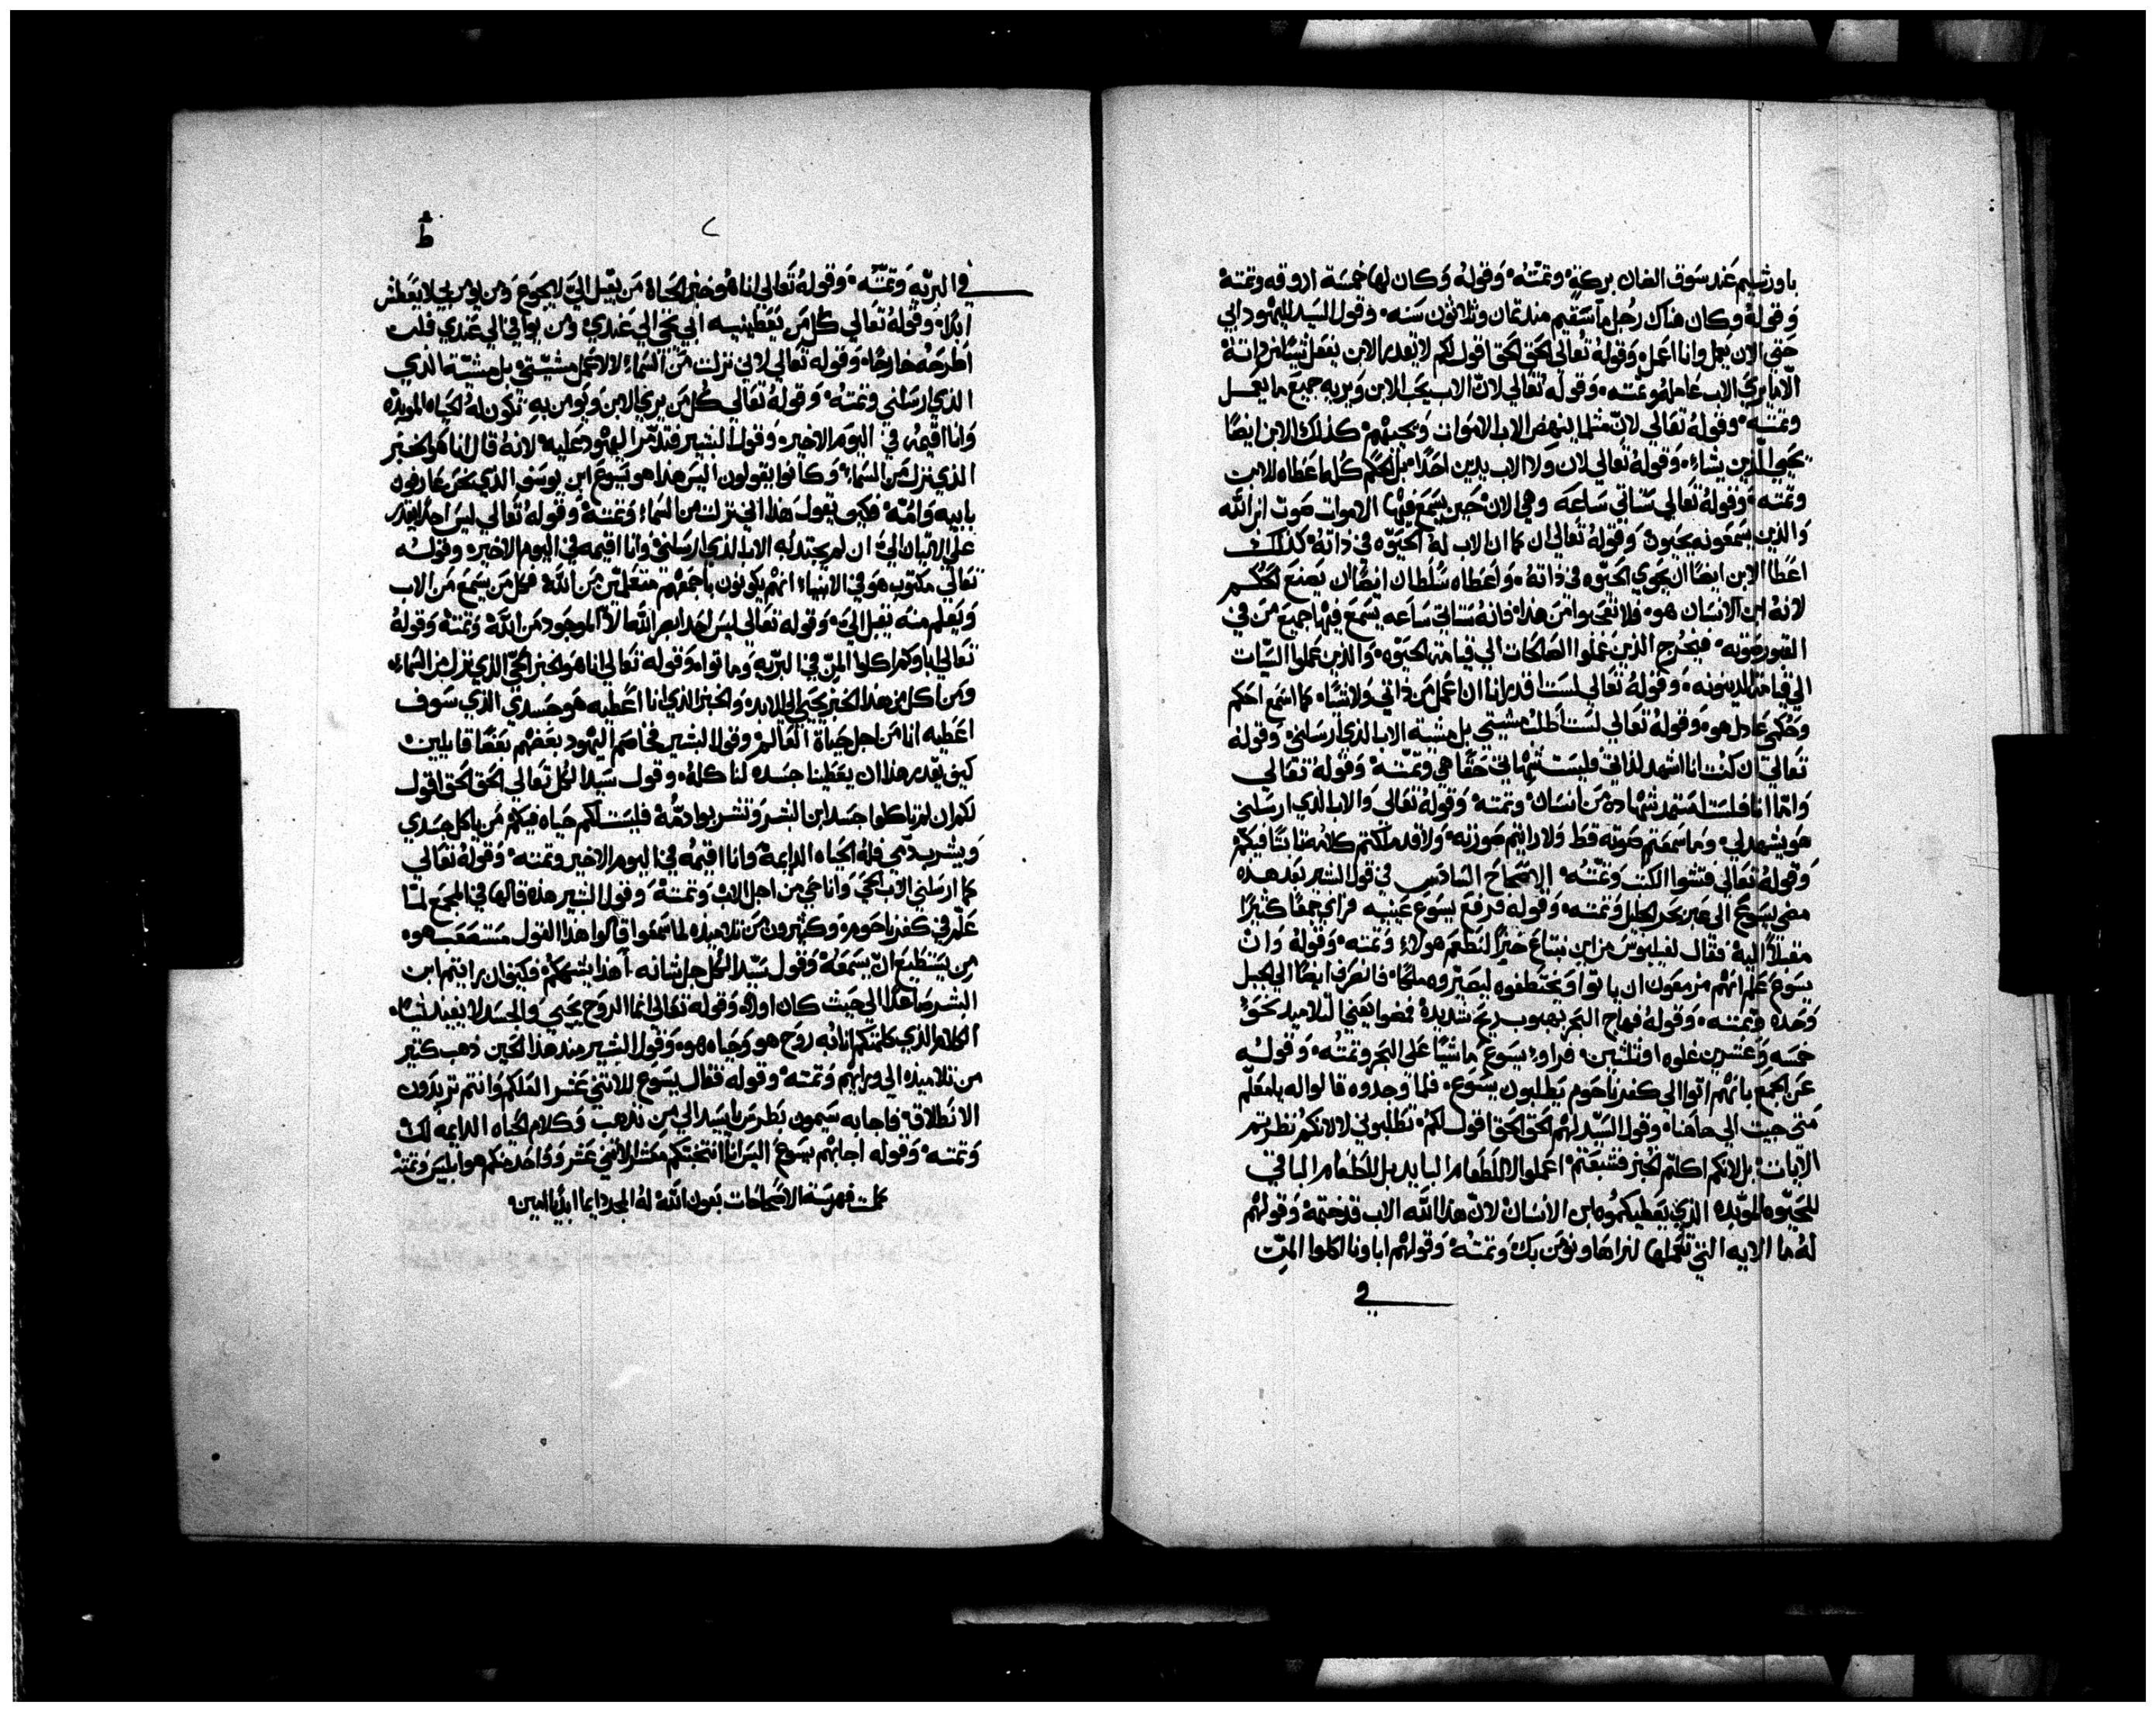 باورشليم عند سوق الضان بركة وتمته وقوله وكان لها خمسة اروقه وتمتة
وقوله وكان هناك رجل ما سقيم منذ تمان وثلاثون سنه وقول السيد لليهود ابي
حتي الان يعمل وانا اعمل وقوله تعالي الحق الحق اقول لكم لا يقدر الابن يفعل شيًا من ذاتة
الا ما يري الاب عامله وتمته وقوله تعالي لان الاب يحب الابن ويريه جميع ما يعمل
وتمته وقوله تعالي لان مثلما ينهض الاب الاموات ويحييهم كذلك الابن ايضًا
يحيي الذين يشاء وقوله تعالي لان ولا الاب يدين احدًا بل الحكم كله اعطاه للابن
وتمته وقوله تعالي ستاتي ساعه وهي الان حين يسمع فيها الاموات صوت ابن الله
والذين يسمعونه يحيون وقوله تعالي ان كما ان الاب له الحيوه في ذاته كذلك
اعطا الابن ايضًا ان يحوي الحيوه في ذاته واعطاه سلطان ايضًا ان يصنع الحكم
لانه ابن الانسان هو فلا تتعجبوا من هذا فانه ستاتي ساعه يسمع فيها جميع من في
القبور صوته فيخرج الذين عملوا الصالحات الي قيامة الحيوه والذين عملوا السيات
الي قيامة الدينونه وقوله تعالي لست اقدر انا ان اعمل من ذاتي ولا شيًا كما اسمع احكم
وحكمي عادل هو وقوله تعالي لست اطلب مشيتي بل مشية الاب الذي ارسلني وقوله
تعالي ان كنت انا اشهد لذاتي فليست شهادتي حقًا هي وتمته وقوله تعالي
واما انا فلست استمد شهادة من انسان وتمته وقوله تعالي والاب الذي ارسلني
هو يشهد لي وما سمعتم صوته قط ولا رايتم صورته ولا قد ملكتم كلامه ثابتًا فيكم
وقوله تعالي فتشوا الكتب وتمته الاصحاح السادس في قول البشير بعد هده
مضي يسوع الي عبر بحر الجليل وتمته وقوله فرفع يسوع عينيه فراي جمعًا كثيرًا
مقبلًا اليه فقال لفيلبوس من اين نبتاع خبزًا لنطعم هولاء وتمته وقوله وان
يسوع علم انهم مزمعون ان ياتوا ويختطفوه ليصيروه ملكًا فانصرف ايضًا الي الجبل
وحده وتمته وقوله فهاج البحر بهبوب ريح شديدة فمضوا يعني التلاميد نحو
خمسه وعشرين غلوه او ثلثين فراوا يسوع ماشيًا علي البحر وتمته وقوله
عن الجمع بانهم اتوا الي كفرناحوم يطلبون يسوع فلما وجدوه قالوا له يا معلم
متي جيت الي هاهنا وقول السيد لهم الحق الحق اقول لكم تطلبوني لا لانكم نظرتم
الايات بل لانكم اكلتم الخبز فشبعتم اعملوا لا للطعام البايد بل للطعام الباقي
للحيوه الموبده الذي يعطيكموه ابن الانسان لان هذا الله الاب قد ختمة وقولهم
له ما الايه التي تعملها لنراها ونومن بك وتمته وقولهم اباونا اكلوا المن
في
٧
ط
في البريه وتمته وقوله تعالي انا هو خبز الحياة من يقبل اليّ لا يجوع ومن يومن بي لا يعطش
ابدًا وقوله تعالي كل من يعطينيه ابي نحوي الي عندي ومن يوافي الي عندي فلست
اطرحه خارجًا وقوله تعالي لاني نزلت من السماء لا لاعمل مشيتي بل مشية الذي
الذي ارسلني وتمته وقوله تعالي كل من يري الابن ويومن به تكون له الحياه الموبده
وانا اقيمه في اليوم الاخير وقول البشير فتدمر اليهود عليه لانه قال انا هو الخبز
الذي نزل من السماء وكانوا يقولون اليس هذا هو يسوع ابن يوسف الذي نحن عارفون
بابيه وامه فكيف يقول هذا اني نزلت من السماء وتمته وقوله تعالي ليس احدًا يقدر
علي الاتيان الي ان لم يجتدبه الاب الذي ارسلني وانا اقيمه في اليوم الاخير وقوله
تعالي مكتوب هو في الانبياء انهم يكونون باجمعهم متعلمين من الله فكل من يسمع من الاب
ويتعلم منه يقبل الي وقوله تعالي ليس احد ابصر الله الا الموجود من الله وتمته وقوله
تعالي اباوكم اكلوا المن في البريه وماتوا وقوله تعالي انا هو الخبز الحي الذي نزل من السماء
ومن اكل من هذا الخبز يحيي الي الابد والخبز الذي انا اعطيه هو جسدي الذي سوف
اعطيه انا من اجل حياة العالم وقول البشير فخاصم اليهود بعضهم بعضًا قايلين
كيف يقدر هذا ان يعطينا جسده لناكله وقول سيد الكل تعالي الحق الحق اقول
لكم ان لم تاكلوا جسد ابن البشر وتشربوا دمه فليست لكم حياه فيكم من ياكل جسدي
ويشرب دمي فله الحياه الدايمة وانا اقيمه في اليوم الاخير وتمته وقوله تعالي
كما ارسلني الاب الحي وانا حي من اجل الاب وتمته وقول البشير هذه قالها في المجمع لما
علم في كفرناحوم وكثيرون من تلاميذه لما سمعوا قالوا هذا القول مستصعب هو
من يستطيع ان يسمعه وقول سيد الكل جل شانه اهذا يشككم فكيف ان رايتم ابن
البشر صاعدًا الي حيث كان اولًا وقوله تعالي انما الروح يحيي والجسد لا يفيد شيًا
الكلام الذي كلمتكم انا به روح هو وحياه هو وقول البشير منذ هذا الحين ذهب كثير
من تلاميذه الي ورايهم وتمته وقوله فقال يسوع للاثني عشر العلكم وانتم تريدون
الانطلاق فاجابه سيمون بطرس يا سيد الي من نذهب وكلام الحياه الدايمه لك
وتمته وقوله اجابهم يسوع اليس انا انتخبتكم معشر الاثني عشر وواحد منكم هو ابليس وتمته
كملت فهرسة الاصحاحات بعون الله له المجد دايما ابديا امين